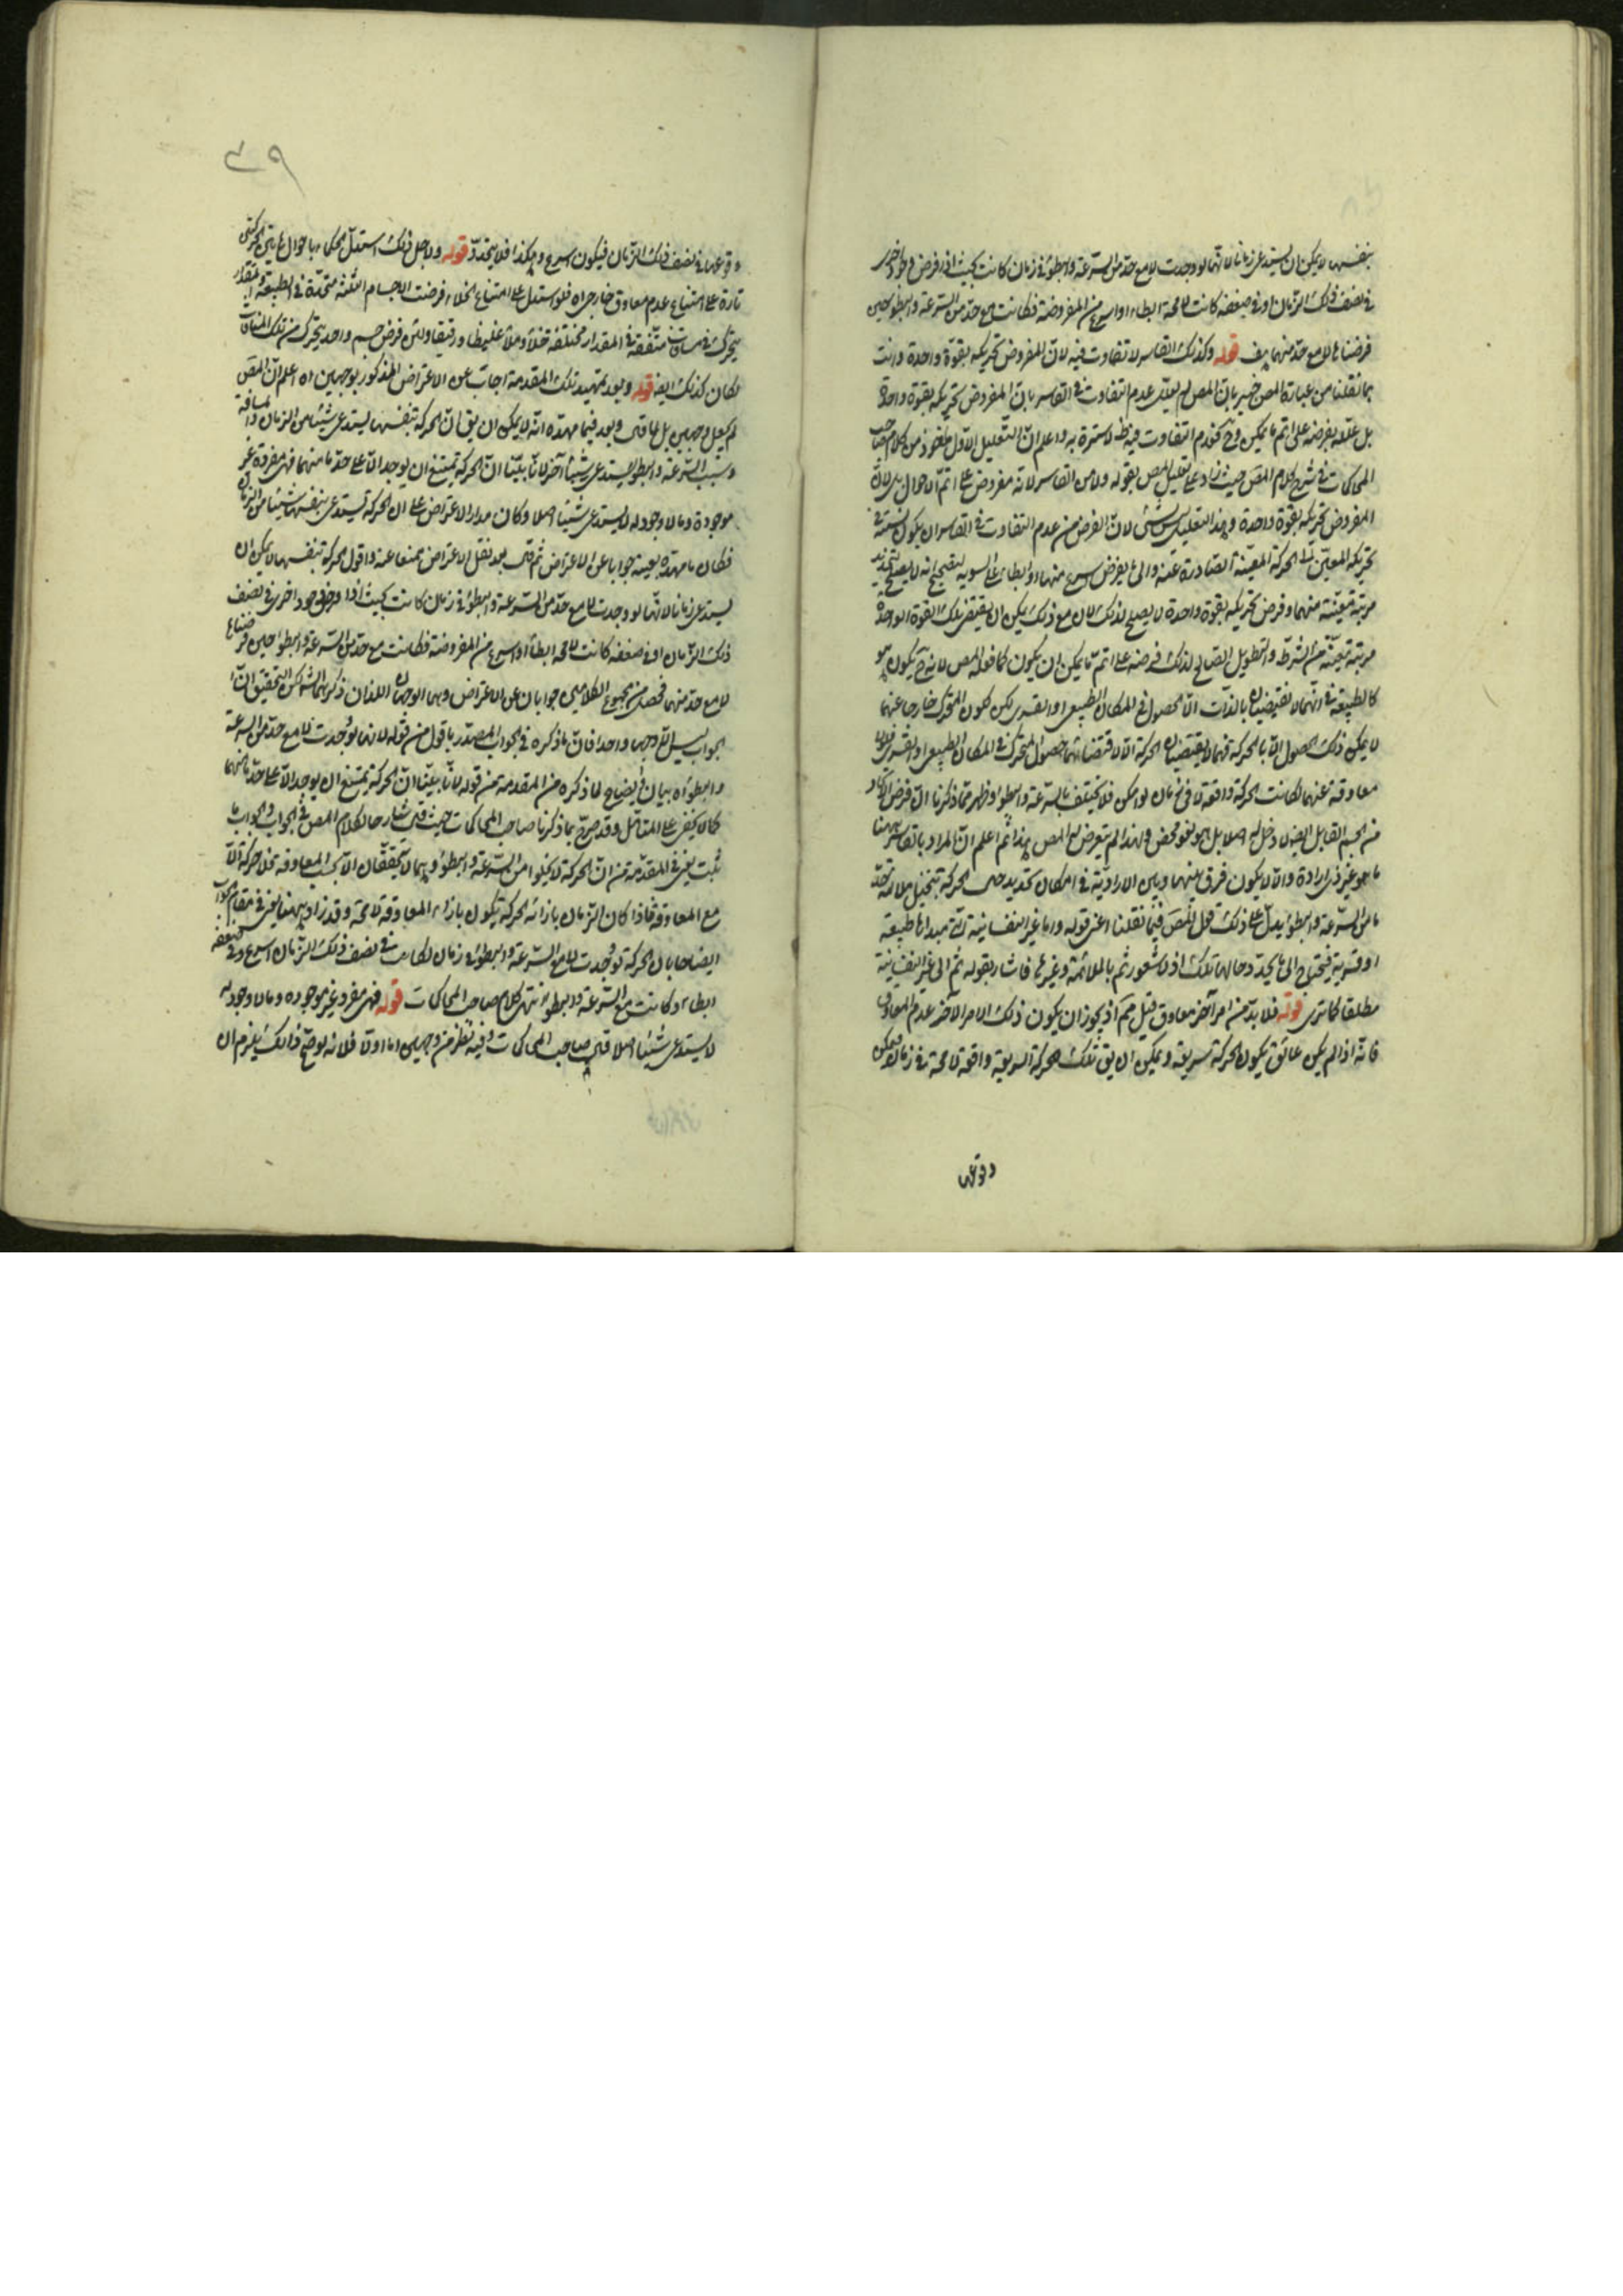 بنفسها لا يمكن ان يستدعى زمانا لانها لو وجدت لا مع حد من السرعة والبطؤ فى زمان كانت بحيث اذا فرض وجود اخرى
فى نصف ذلك الزمان او فى ضعفه كانت لا محة ابطاء او اسرع من المفروضة فكانت مع حد من السرعة والبطؤ حين
فرضناها لا مع حد منهما هف قوله وكذلك القاسر لا تفاوت فيه لان المفروض تحريكه بقوة واحدة وانت
بما نقلنا من عبارة المص خبير بان المص لم يعلل عدم التفاوت فى القاسر بان المفروض تحريكه بقوة واحدة
بل علله بفرضه على اتم ما يمكن وح فعدم التفاوت فيه ظ لا سترة به واعلم ان التعليل الاول مأخوذ من كلام صاحب
المحاكمات فى شرح كلام المص حيث زاد على تعليل المص بقوله ولا من القاسر لانه مفروض على اتم الاحوال لان
المفروض تحريكه بقوة واحدة وهذا التعليل ليس بشئ لان الغرض من عدم التفاوت فى القاسر ان يكون نسبته فى
تحريكه المعين الى الحركة المعينة الصادرة عنه والى ما يفرض اسرع منها او ابطأ على السوية ليتضح انه لا يصلح لتحديد
مرتبة معينة منهما وفرض تحريكه بقوة واحدة لا يصلح لذلك لان مع ذلك يمكن ان يقتضى تلك القوة الواحدة
مرتبة معينة من الشرطه والتطويل الصالح لذلك فرضه على اتم ما يمكن ان يكون كما فعله المص لانه ح يكون هو
كالطبيعة فى انهما لا تقتضيان بالذات الا الحصول فى المكان الطبيعى او القسرى لكن لكون المتحرك خارجا عنهما
لا يمكن ذلك الحصول الا بالحركة فهما لا يقتضيان الحركة الا لاقتضائهما حصول المتحرك فى المكان الطبيعى او القسرى فلولا
معاوقة عنهما لكانت الحركة واقعة لا فى زمان لو امكن فلا تختلف بالسرعة والبطؤ وظهر مما ذكرنا ان فرض
من الجسم القابل ايض لا دخل له اصلا بل هو لغو محض ولهذا لم يتعرض له المص هذا ثم اعلم ان المراد بالقاسر ههنا
ما هو غير ذى ارادة والا لا يكون فرق بينهما وبين الارادية فى امكان تحديد حال الحركة بتخيل ملائمة حد
ما من السرعة والبطؤ يدل على ذلك قول المص فيما نقلنا اعنى قوله واما غير النفسانية التى مبدأها طبيعة
او قسرية فيحتاج الى ما يحدد حالها تلك اذ لا شعور ثم بالملائمة وغيرها فاشار بقوله ثم الى غير النفسانية
مطلقا كما ترى قوله فلا بد من امر آخر معاوق قيل مم اذ يجوز ان يكون ذلك الامر الآخر عدم المعاوق
فانه اذا لم يكن عائق تكون الحركة سريعة ويمكن ان يق تلك الحركة السريعة واقعة لا محة فى زمان ويمكن
ووقوعها
٤٩
وقوعها فى نصف ذلك الزمان فيكون اسرع وهكذا فلا يتحدد قوله ولاجل ذلك استدل الحكماء باحوال هاتين الحركتين
تارة على امتناع عدم معاوق خارجى اه فلو استدل على امتناع الخلاء فرضت الاجسام الثلثة متحدة فى الطبيعة والمقدار
يتحرك فى مسافات متفقة فى المقدار مختلفة خلاء وملاء غليظا ورقيقا ولئن فرض جسم واحد يتحرك من تلك المسافات
لكان كذلك ايض قوله وبعد تمهيد تلك المقدمة اجاب عن الاعتراض المذكور بوجهين اه اعلم ان المص
لم يجعل وجهين بل هما قال وبعد فيما مهده انه لا يمكن ان يق ان الحركة بنفسها يستدعى شيئا من الزمان
وسبب السرعة والبطؤ يستدعى شيئا آخر لانا بينا ان الحركة يمتنع ان يوجد الا على حد ما منهما فهى مفردة غير
موجودة وما لا وجود له لا يستدعى شيئا اصلا وكان مدار الاعتراض على ان الحركة تستدعى بنفسها شيئا من الزمان
فكان ما مهده بعينه جوابا عن الاعتراض ثم قال بعد نقل الاعتراض ممنعا عنه واقول الحركة بنفسها لا يمكن ان
يستدعى زمانا لانها لو وجدت لا مع حد من السرعة والبطؤ فى زمان كانت بحيث اذا فرض وجود اخرى فى نصف
ذلك الزمان او فى ضعفه كانت لا محة ابطأ او اسرع من المفروضة فكانت مع حد من السرعة والبطؤ حين فرضناها
لا مع حد منهما فحصل من مجموع الكلامين جوابان عن الاعتراض وهما الوجهان اللذان ذكرهما الش لكن التحقيق ان
الجواب ليس الا وجها واحدا فان ما ذكره فى الجواب المصدر باقول من قوله لانها لو وجدت لا مع حد من السرعة
والبطؤ اه بيان وايضاح لما ذكره من المقدمة من قوله لانا بينا ان الحركة يمتنع ان يوجد الا على حد ما منهما
كما لا يخفى على المتأمل وقد صرح بما ذكرنا صاحب المحاكمات حيث قال شارحا لكلام المص فى الجواب والجواب ما
ثبت يعنى فى المقدمة من ان الحركة لا يخلوا من السرعة والبطؤ وهما لا يتحققان الا بحسب المعاوقة فلا حركة الا
مع المعاوقة فاذا كان الزمان بازائه الحركة يكون بازاء المعاوقة لا محة وقد زاد ههنا يعنى فى مقام الجواب
ايضاحا بان الحركة لو وجدت لا مع السرعة والبطؤ فى زمان لكانت فى نصف ذلك الزمان اسرع وفى ضعفه
ابطاء وكانت مع السرعة والبطؤ انتهى كلام صاحب المحاكمات قوله فهى مفرده غير موجوده وما لا وجود له
لا يستدعى شيئا اصلا قال صاحب المحاكمات وفيه نظر من وجهين اما اولا فلانه لو صح ذلك يلزم ان